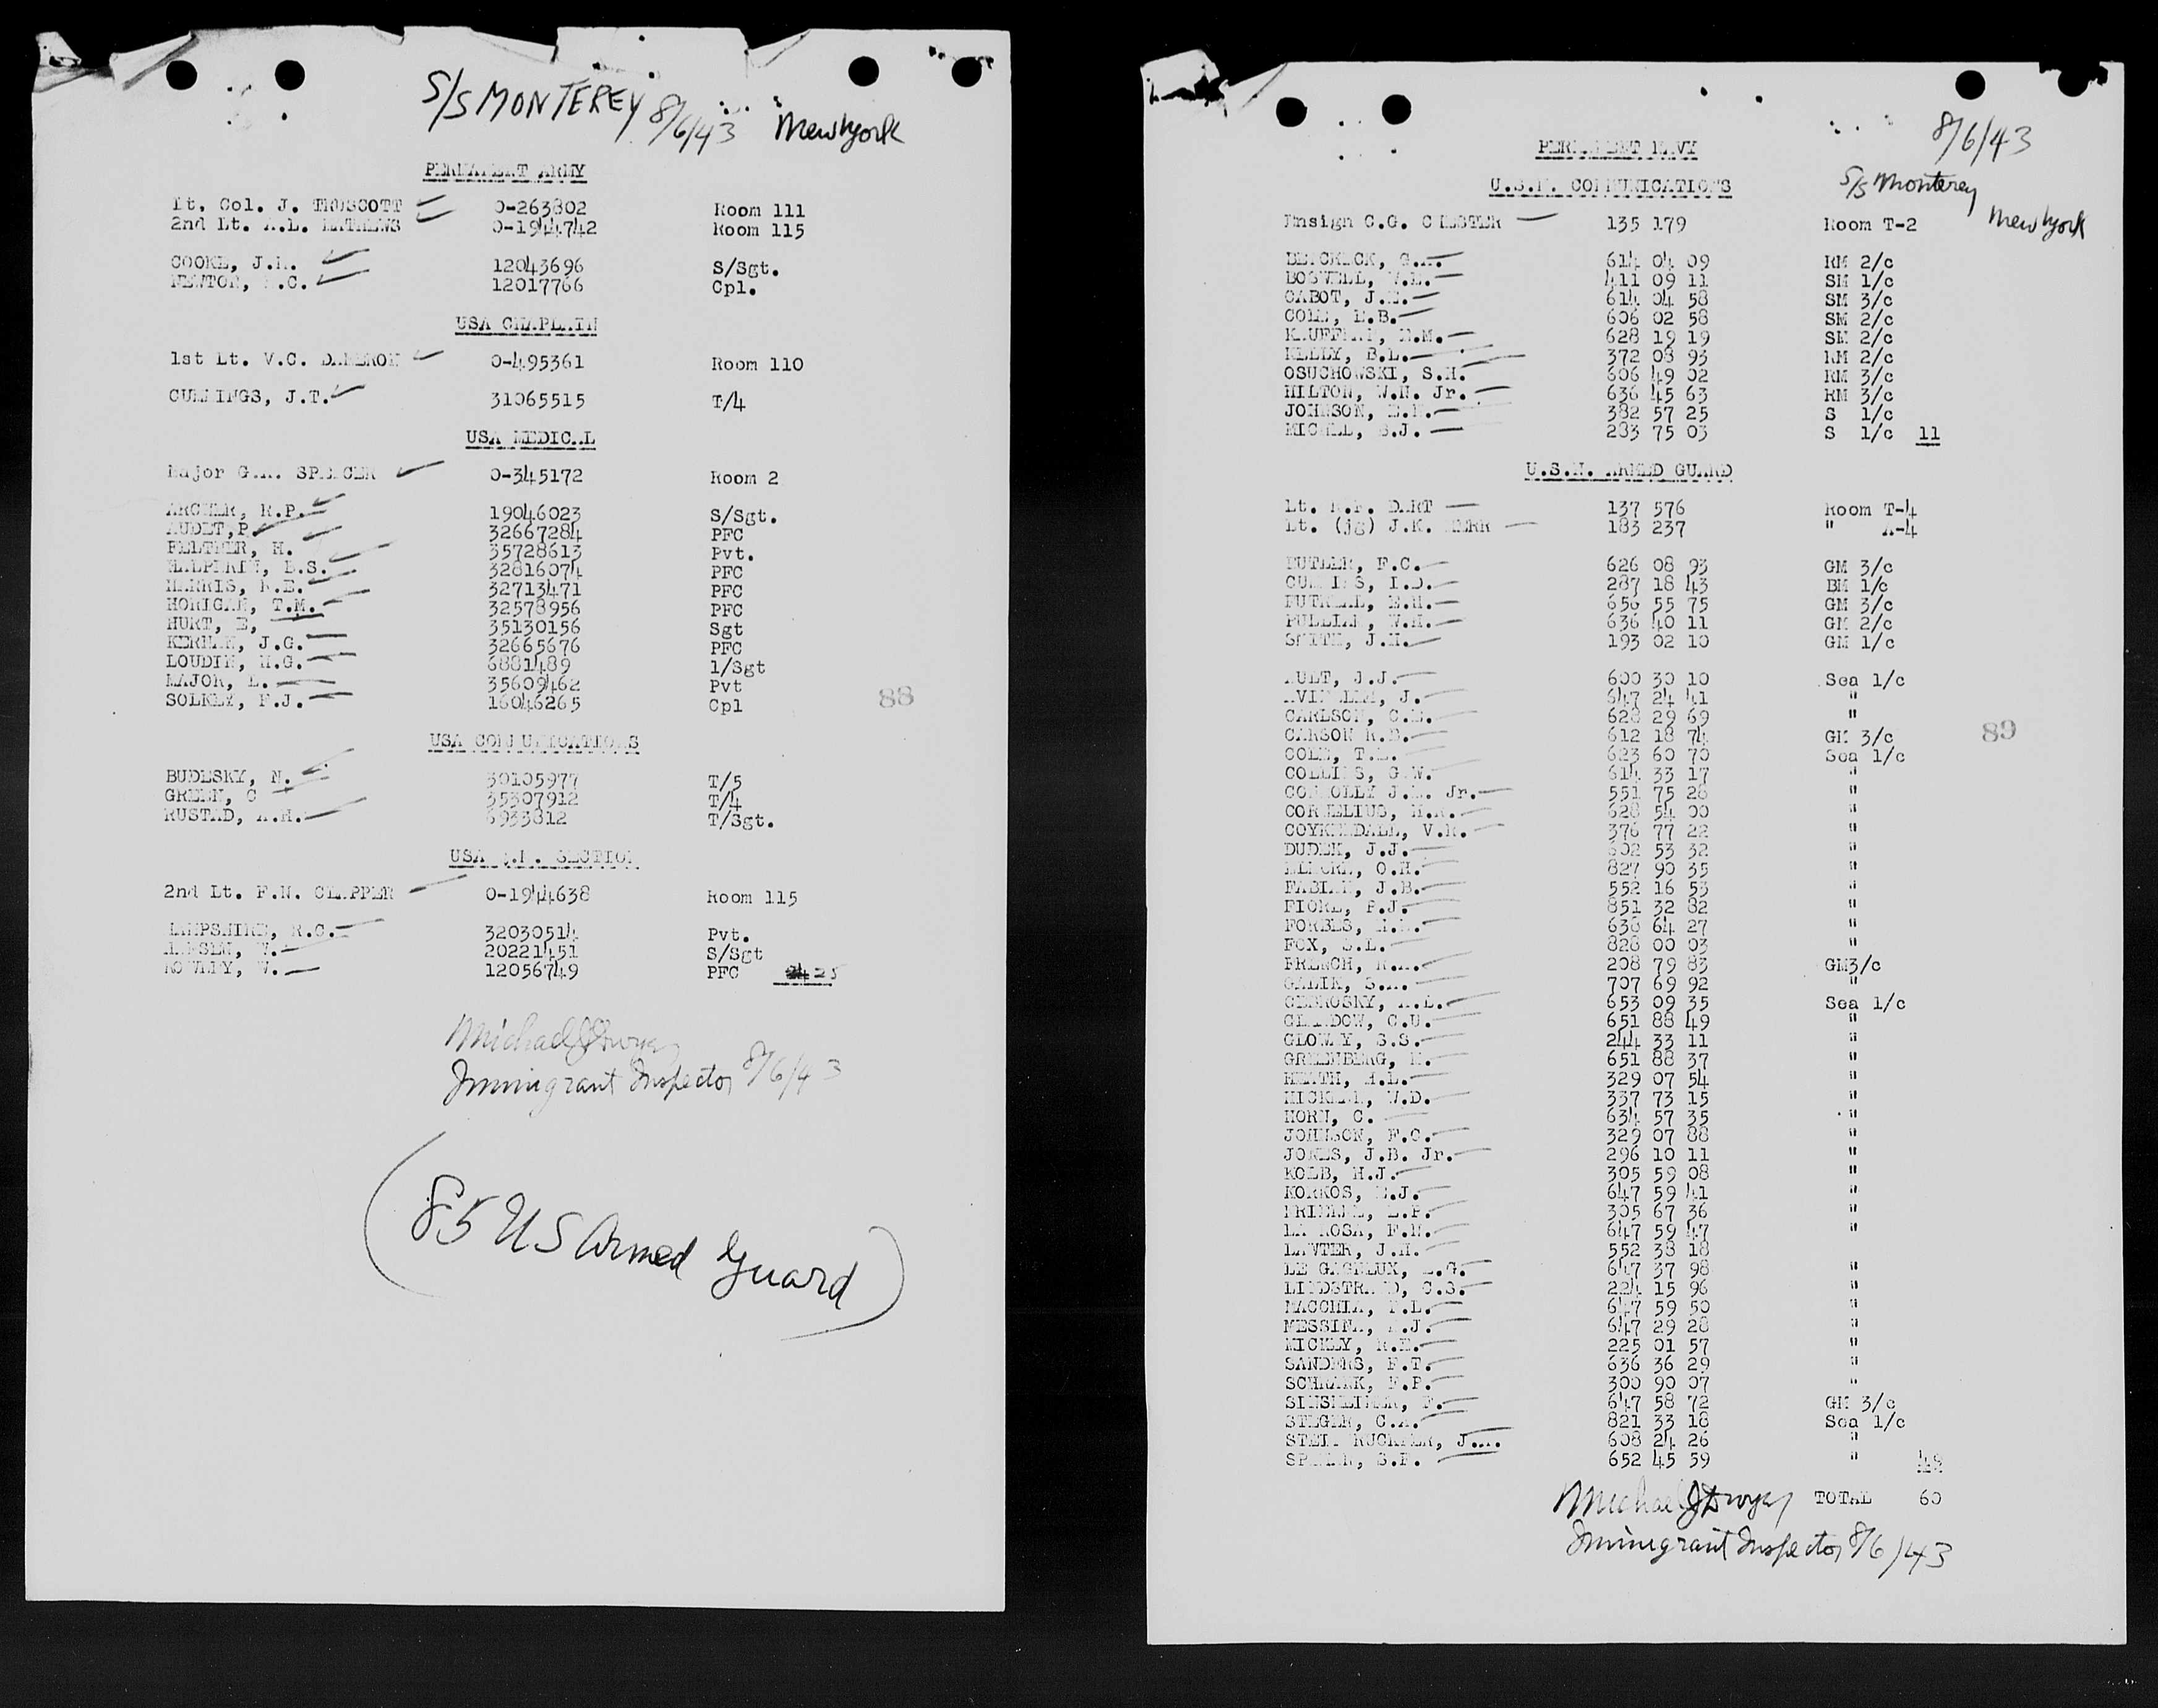 S/S MONTEREY 8/6/43 New York
PERMANENT ARMY
Lt. Col. J. TRUSCOTT 0-263802 Room 111
2nd Lt. A.L. MATHEWS 0-1944742 Room 115
COOKE, J.R. 12043696 S/Sgt.
NEWTON, .C. 12017766 Cpl.
USA CHAPLAIN
1st Lt. V.C. DAMERON 0-495361 Room 110
CUMMINGS, J.T. 31065515 T/4
USA MEDICAL
Major G.R. SPENCER 0-345172 Room 2
ARCHER, R.P. 19046023 S/Sgt.
AUDET, P. 32667284 PFC
FELTNER, H. 35728613 Pvt.
HALPERIN, L.S. 32816074 PFC
HARRIS, R.E. 32713471 PFC
HORIGAN, T.M. 32578956 PFC
HURT, E, 35130156 Sgt
KERNAN, J.G. 32665676 PFC
LOUDIN, H.G. 6881489 1/Sgt
MAJOR, L. 35609462 Pvt
SOLKEY, F.J. 16046265 Cpl
88
USA COMMUNICATIONS
BUDESKY, N. 30105977 T/5
GREEN, C 35307912 T/4
RUSTAD, A.H. 6933812 T/Sgt.
USA SECTION
2nd Lt. F.N. CLAPPER 0-1944638 Room 115
HAMPSHIRE, R.C. 32030514 Pvt.
HANSEN, W. 20221451 S/Sgt
ROWLEY, W. 12056749 PFC 25
Michael J Dwyer
Immigrant Inspector 8/6/43
(85 US Armed Guard)
8/6/43
PERMANENT NAVY
S/S Monterey
U.S.N. COMMUNICATIONS
New York
Ensign C.G. CHESTER 135 179 Room T-2
614 04 09 RM 2/c
BOSWELL, W.L. 411 09 11 SM 1/c
CABOT, J.E. 614 04 58 SM 3/c
COLE, E.B. 606 02 58 SM 2/c
KAUFFMAN, H.M. 628 19 19 SM 2/c
KELLY, B.L. 372 08 93 RM 2/c
OSUCHOWSKI, S.H. 606 49 02 RM 3/c
HILTON, W.N. Jr. 636 45 63 RM 3/c
JOHNSON, E.E. 382 57 25 S 1/c
S.J. 283 75 03 S 1/c 11
U.S.N. ARMED GUARD
Lt. R.F. DART 137 576 Room T-4
Lt. (jg) J.K. 183 237 " A-4
BUTLER, F.C. 626 08 93 GM 3/c
L.D. 287 18 43 BM 1/c
FUTRELL, E.H. 656 55 75 GM 3/c
PULLIAM, W.H. 636 40 11 GM 2/c
SMITH, J.H. 193 02 10 GM 1/c
AULT, J.J. 600 30 10 Sea 1/c
J. 647 24 41 "
CARLSON, C.E. 628 29 69 "
CARSON R.D. 612 18 74 GM 3/c
89
COLE, T.L. 623 60 70 Sea 1/c
COLLINS, G.W. 614 33 17 "
CONNOLLY J.L. Jr. 551 75 28 "
CORNELIUS, H.R. 628 54 00 "
COYKENDALL, V.R. 376 77 22 "
DUDEK, J.J. 802 53 32 "
ELMORE, O.H. 827 90 35 "
FABIAN, J.B. 552 16 53 "
FIORE, P.J. 851 32 82 "
FORBES, 636 64 27 "
FOX, S.E. 828 00 03 "
FRENCH, R.A. 208 79 83 GM3/c
GALIK, S.A. 707 69 92 "
653 09 35 Sea 1/c
C.U. 651 88 49 "
S.S. 244 33 11 "
GREENBERG, H. 651 88 37 "
HEATH, H.L. 329 07 54 "
W.D. 337 73 15 "
HORN, C. 634 57 35 "
JOHNSON, F.C. 329 07 88 "
JONES, J.B. Jr. 296 10 11 "
KOLB, H.J. 305 59 08 "
KORKOS, E.J. 647 59 41 "
L.P. 305 67 36 "
LA ROSA, F.N. 647 59 47 "
LAWTER, J.H. 552 38 18
LE GAGNEUX, L.G. 647 37 98 "
LINDSTRAND, C.S. 224 15 96 "
MACCHIA, F.L. 647 59 50 "
MESSINA, A.J. 647 29 28 "
MICKLY, R.E. 225 01 57 "
SANDERS, F.T. 636 36 29 "
SCHRANK, F.P. 300 90 07 "
SINSHEIMER, F. 647 58 72 GM 3/c
STEGER, C.A. 821 33 18 Sea 1/c
608 24 26 "
S.F. 652 45 59 " 49
Michael J Dwyer TOTAL 60
Immigrant Inspector 8/6/43